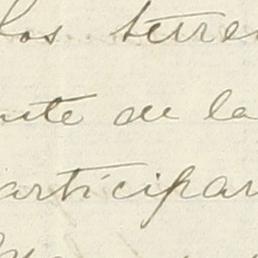 los terre
nte de la
articipar